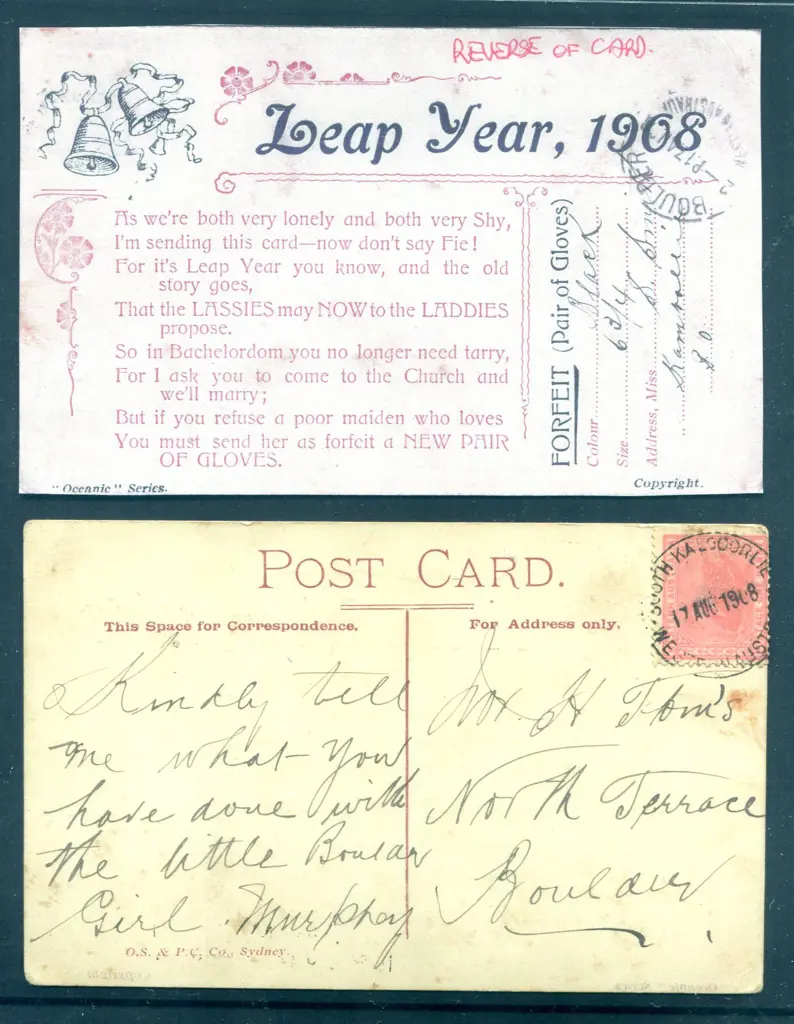 REVERSE OF CARD.
Leap Year, 1908
As we're both very lonely and both very Shy,
I'm sending this card—now don't say Fie!
For it's Leap Year you know, and the old
story goes,
That the LASSIES may NOW to the LADDIES
propose.
So in Bachelordom you no longer need tarry,
For I ask you to come to the Church and
we'll marry;
But if you refuse a poor maiden who loves
You must send her as forfeit a NEW PAIR
OF GLOVES.
"Oceanic" Series.
FORFEIT (Pair of Gloves)
Colour Black
Size 6 3/4
Address, Miss S.
Copyright.
BOULDER
POST CARD.
This Space for Correspondence.
For Address only.
SOUTH KALGOORLIE
17 AUG 1908
Kindly tell
me what you
have done with
the little Boulder
Girl Murphey
H Tom's
North Terrace
Boulder
O.S. & P.C. Co., Sydney.